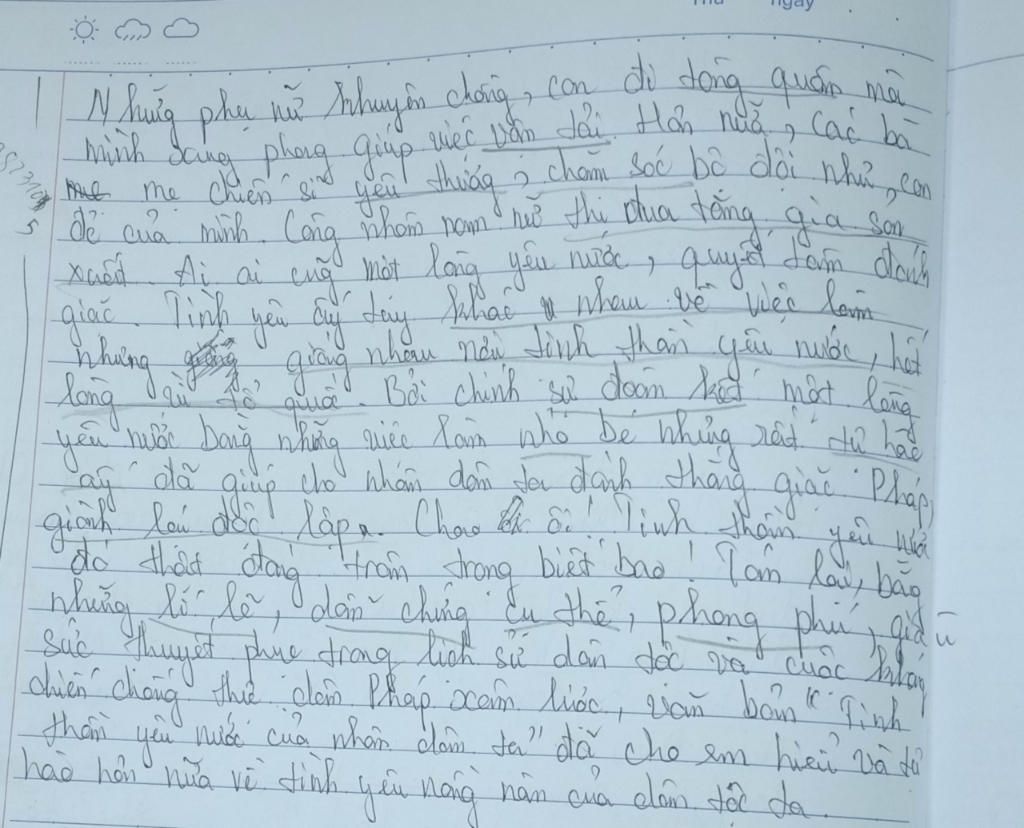 Thứ ngày
Những phụ nữ khuyên chồng, con đi tòng quân mà
mình xung phong giúp việc vận tải. Hơn nữa, các bà
mẹ chiến sĩ yêu thương, chăm sóc bộ đội như con
đẻ của mình. Công nhân nam nữ thi đua tăng gia sản
xuất. Ai ai cũng một lòng yêu nước, quyết tâm đánh
giặc. Tình yêu ấy tuy khác nhau về việc làm
nhưng giống nhau nơi tinh thần yêu nước, hết
lòng vì tổ quốc. Bởi chính sự đoàn kết một lòng
yêu nước bằng những việc làm nhỏ bé nhưng rất tự hào
ấy đã giúp cho nhân dân ta đánh thắng giặc Pháp,
giành lại độc lập. Chao ôi! Tinh thần yêu nước
đó thật đáng trân trọng biết bao! Tóm lại, bằng
những lí lẽ, dẫn chứng cụ thể, phong phú, giàu
sức thuyết phục trong lịch sử dân tộc và cuộc kháng
chiến chống thực dân Pháp xâm lược, văn bản "Tinh
thần yêu nước của nhân dân ta" đã cho em hiểu và tự
hào hơn nữa về tình yêu nồng nàn của dân tộc ta.